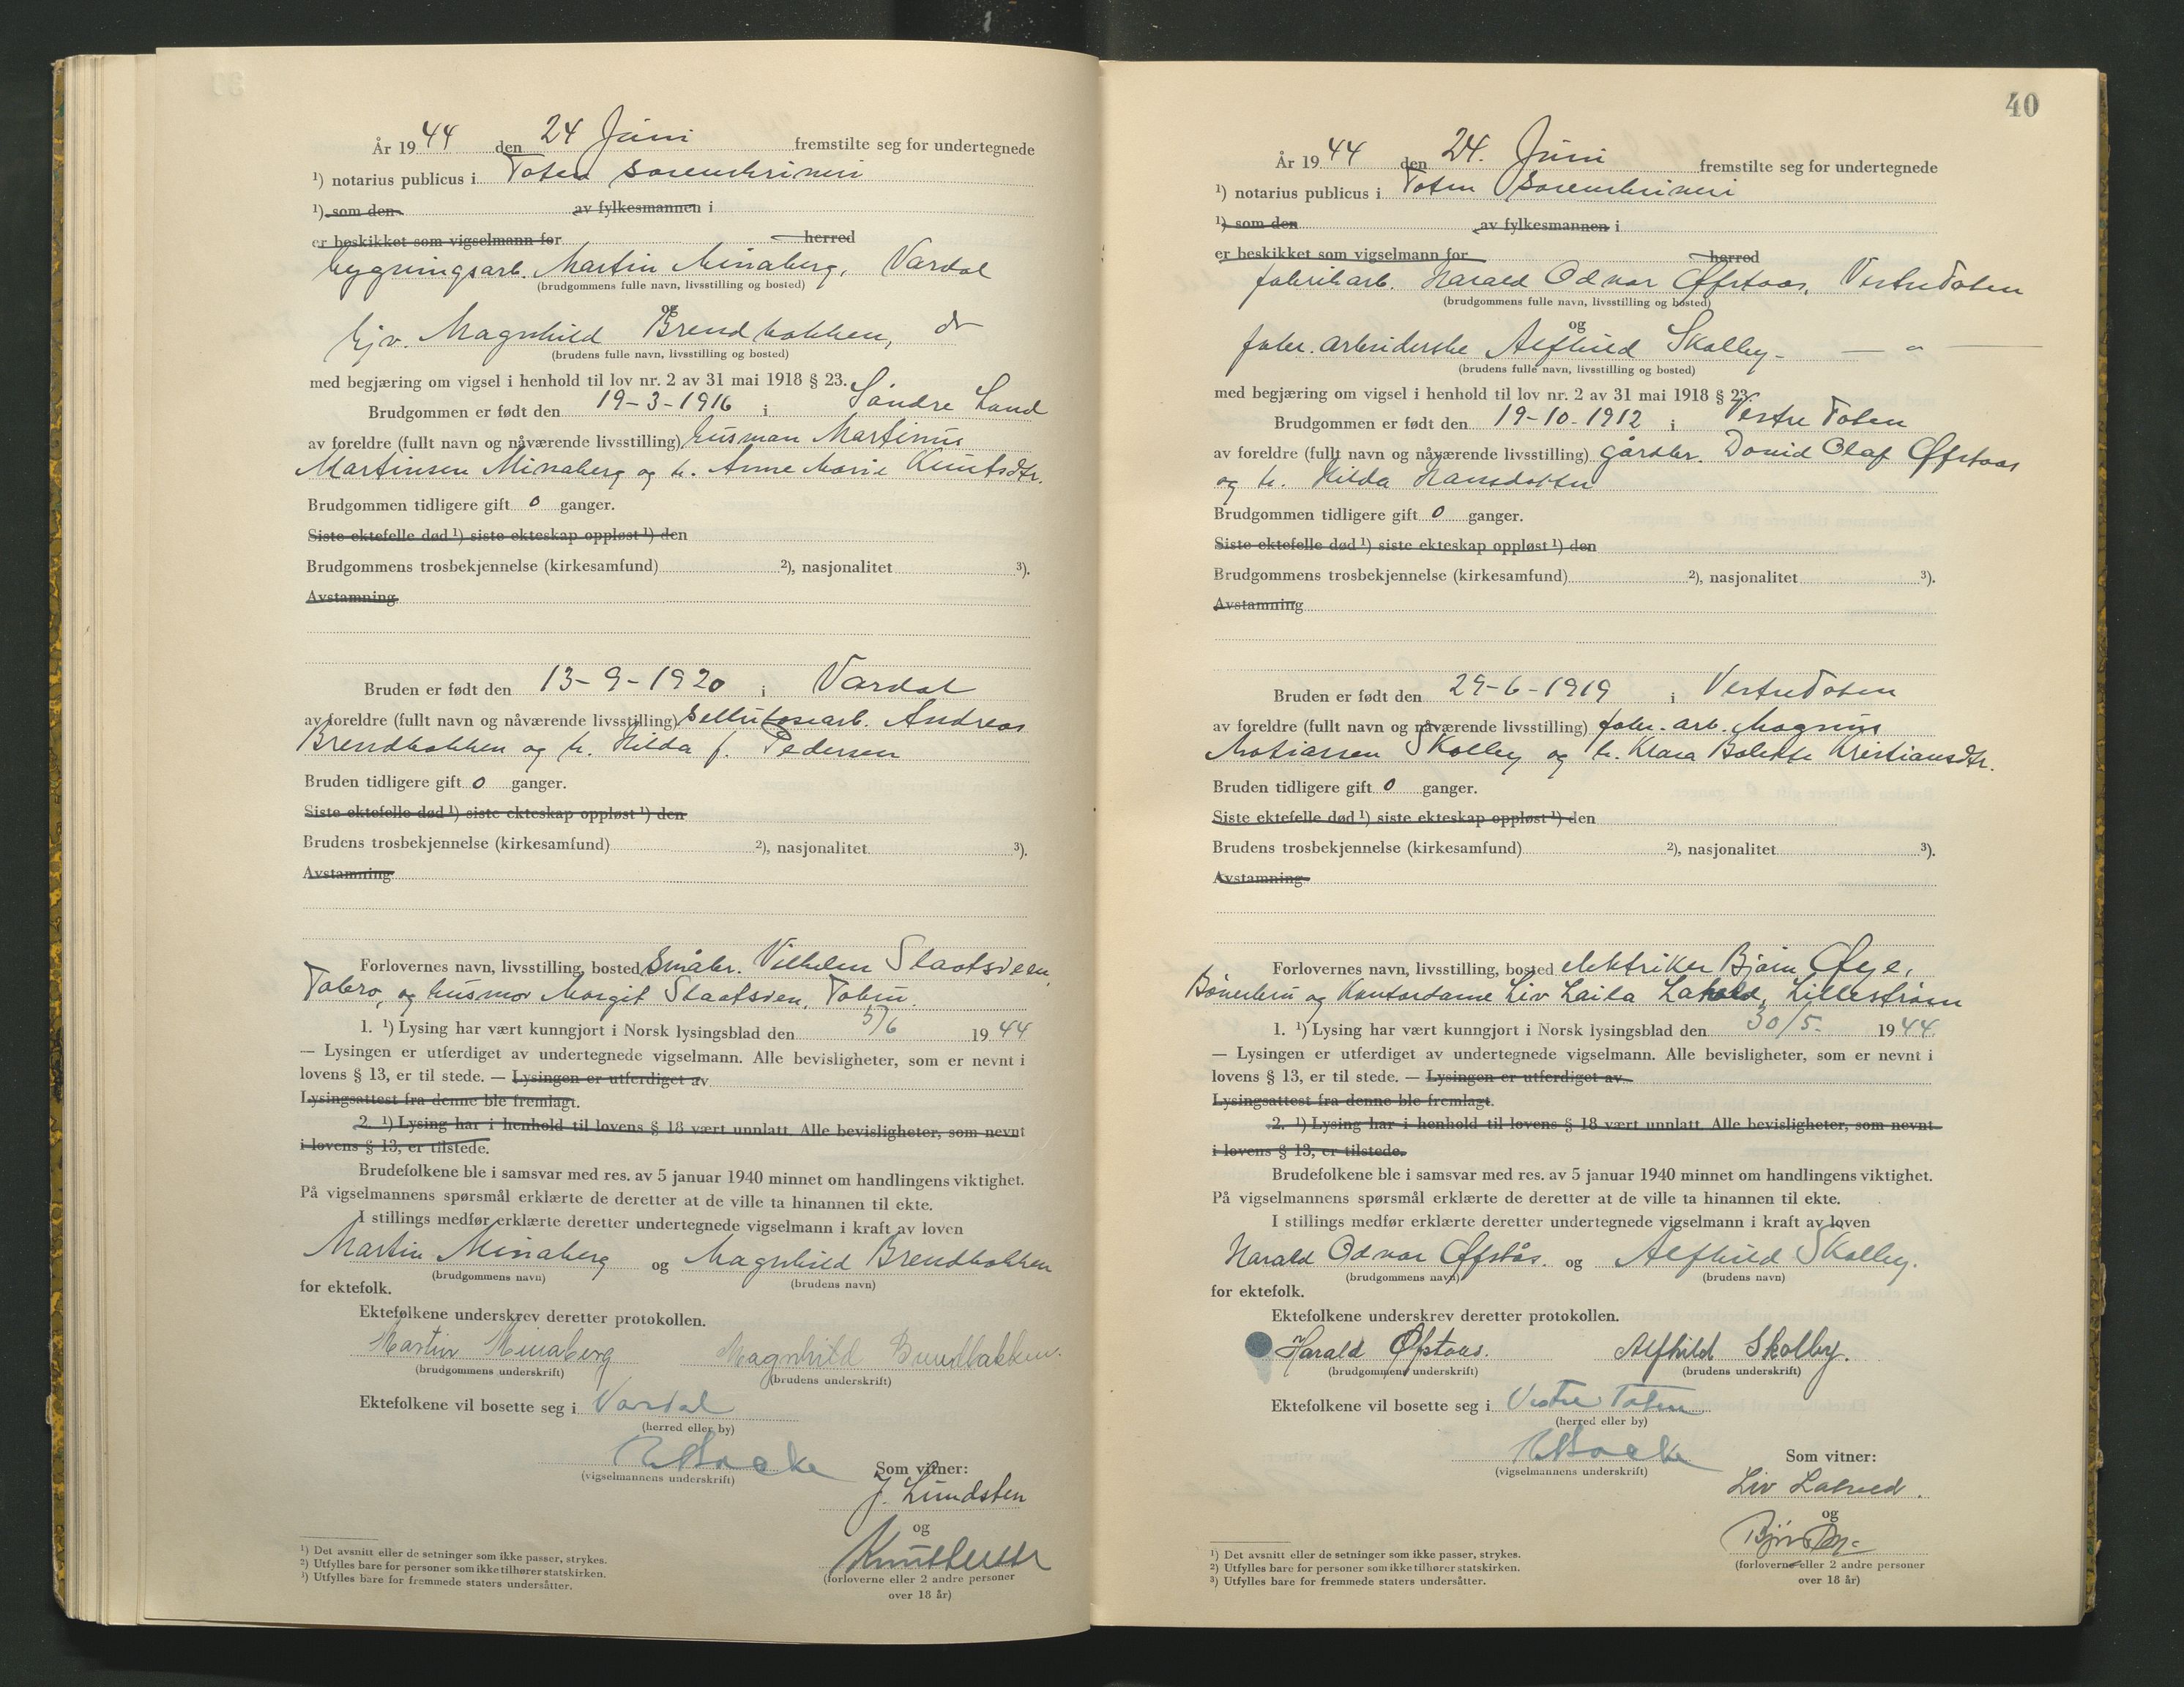 År 1944 den 24 Juni fremstilte seg for undertegnede
¹) notarius publicus i Toten sorenskriveri
¹) som den av fylkesmannen i
er beskikket som vigselmann for herred
bygningsarb. Martin Minaberg, Vardal
(brudgommens fulle navn, livsstilling og bosted)
og
hjv. Magnhild Brendbakken, do
(brudens fulle navn, livsstilling og bosted)
med begjæring om vigsel i henhold til lov nr. 2 av 31 mai 1918 § 23.
Brudgommen er født den 19-3-1916 i Søndre Land
av foreldre (fullt navn og nåværende livsstilling) husman Martinus
Martinsen Minaberg og h. Anne Marie Knutsdtr.
Brudgommen tidligere gift 0 ganger.
Siste ektefelle død ¹) siste ekteskap oppløst ¹) den
Brudgommens trosbekjennelse (kirkesamfund) ²), nasjonalitet ³).
Avstamning
Bruden er født den 13-9-1920 i Vardal
av foreldre (fullt navn og nåværende livsstilling) sellulosearb. Andreas
Brendbakken og h. Hilda f. Pedersen
Bruden tidligere gift 0 ganger.
Siste ektefelle død ¹) siste ekteskap oppløst ¹) den
Brudens trosbekjennelse (kirkesamfund) ²), nasjonalitet ³).
Avstamning
Forlovernes navn, livsstilling, bosted småbr. Vilhelm Slaatsveen,
og husmor Margit Slaatsveen,
1. ¹) Lysing har vært kunngjort i Norsk lysingsblad den 5/6 1944
— Lysingen er utferdiget av undertegnede vigselmann. Alle bevisligheter, som er nevnt i
lovens § 13, er til stede. — Lysingen er utferdiget av
Lysingsattest fra denne ble fremlagt.
2. ¹) Lysing har i henhold til lovens § 18 vært unnlatt. Alle bevisligheter, som nevnt
i lovens § 13, er tilstede.
Brudefolkene ble i samsvar med res. av 5 januar 1940 minnet om handlingens viktighet.
På vigselmannens spørsmål erklærte de deretter at de ville ta hinannen til ekte.
I stillings medfør erklærte deretter undertegnede vigselmann i kraft av loven
Martin Minaberg og Magnhild Brendbakken
(brudgommens navn) (brudens navn)
for ektefolk.
Ektefolkene underskrev deretter protokollen.
Martin Minaberg Magnhild Brendbakken.
(brudgommens underskrift) (brudens underskrift)
Ektefolkene vil bosette seg i Vardal
(herred eller by)
(vigselmannens underskrift)
Som vitner:
J. Lundsten
og
(forloverne eller 2 andre personer
over 18 år)
¹) Det avsnitt eller de setninger som ikke passer, strykes.
²) Utfylles bare for personer som ikke tilhører statskirken.
³) Utfylles bare for fremmede staters undersåtter.
40
År 1944 den 24. Juni fremstilte seg for undertegnede
¹) notarius publicus i Toten sorenskriveri
¹) som den av fylkesmannen i
er beskikket som vigselmann for herred
fabrikarb. Harald Odvar Øfstaas, Vestre Toten
(brudgommens fulle navn, livsstilling og bosted)
og
fabr. arbeiderske Alfhild Skolby — " —
(brudens fulle navn, livsstilling og bosted)
med begjæring om vigsel i henhold til lov nr. 2 av 31 mai 1918 § 23.
Brudgommen er født den 19-10-1912 i Vestre Toten
av foreldre (fullt navn og nåværende livsstilling) gårdbr. David Olaf Øfstaas
og h. Hilda Hansdatter
Brudgommen tidligere gift 0 ganger.
Siste ektefelle død ¹) siste ekteskap oppløst ¹) den
Brudgommens trosbekjennelse (kirkesamfund) ²), nasjonalitet ³).
Avstamning
Bruden er født den 29-6-1919 i Vestre Toten
av foreldre (fullt navn og nåværende livsstilling) fabr. arb. Magnus
Matiassen Skolby og h. Klara Bolette Kristiansdtr.
Bruden tidligere gift 0 ganger.
Siste ektefelle død ¹) siste ekteskap oppløst ¹) den
Brudens trosbekjennelse (kirkesamfund) ²), nasjonalitet ³).
Avstamning
Forlovernes navn, livsstilling, bosted elektriker Bjørn Øye,
og kontordame Liv Laila Lahold, Lillestrøm
1. ¹) Lysing har vært kunngjort i Norsk lysingsblad den 30/5. 1944.
— Lysingen er utferdiget av undertegnede vigselmann. Alle bevisligheter, som er nevnt i
lovens § 13, er til stede. — Lysingen er utferdiget av
Lysingsattest fra denne ble fremlagt.
2. ¹) Lysing har i henhold til lovens § 18 vært unnlatt. Alle bevisligheter, som nevnt
i lovens § 13, er tilstede.
Brudefolkene ble i samsvar med res. av 5 januar 1940 minnet om handlingens viktighet.
På vigselmannens spørsmål erklærte de deretter at de ville ta hinannen til ekte.
I stillings medfør erklærte deretter undertegnede vigselmann i kraft av loven
Harald Odvar Øfstås. og Alfhild Skolby.
(brudgommens navn) (brudens navn)
for ektefolk.
Ektefolkene underskrev deretter protokollen.
Harald Øfstaas. Alfhild Skolby.
(brudgommens underskrift) (brudens underskrift)
Ektefolkene vil bosette seg i Vestre Toten
(herred eller by)
(vigselmannens underskrift)
Som vitner:
Liv
og
Bjørn Øye
(forloverne eller 2 andre personer
over 18 år)
¹) Det avsnitt eller de setninger som ikke passer, strykes.
²) Utfylles bare for personer som ikke tilhører statskirken.
³) Utfylles bare for fremmede staters undersåtter.